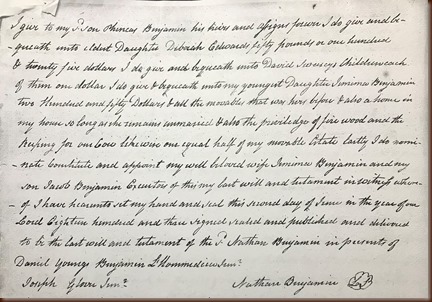 I give to my Sd Son Phineas Benjamin his heirs and assigns forever I do give and be-
-queath unto eldest Daughter Deborah Edwards fifty pounds or one hundred
& twenty five dollars I do give and bequeath unto David Children each
of them one dollar I do give & bequeath unto my youngest Daughter Jemima Benjamin
two Hundred and fifty Dollars & all the movable that was hers before & also a home in
my house so long as she remains unmaried & also the priviledge of fire wood and the
Keeping for one Cow likewise one equal half of my movable Estate lastly I do nomi-
-nate Constitute and appoint my well beloved wife Jemima Benjamin and my
son Jacob Benjamin Executors of this my last will and testament in witness where-
-of I have hereunto set my hand and seal this second day of June in the year of our
Lord Eighteen hundred and three signed sealed and published and delivered
to be the last will and testament of the Sd Nathan Benjamin in presents of
Daniel Youngs Benjamin L'Hommedieu Junr.
Joseph Glover Junr. Nathan Benjamin